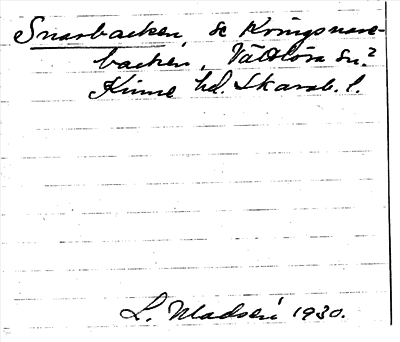 Snarbacken, se Kringsnare-
backen, Vättlösa sn?
Kinne hd. Skarab. l.
L. Madsén 1930.